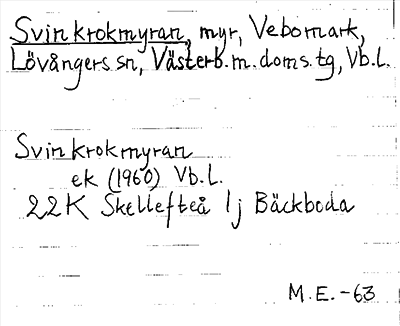 Svinkrokmyran, myr, Vebomark,
Lövångers sn, Västerb. m. doms. tg, Vb. L.
Svinkrokmyran
ek (1960) Vb. L.
22K Skellefteå 1j Bäckboda
M. E. -63